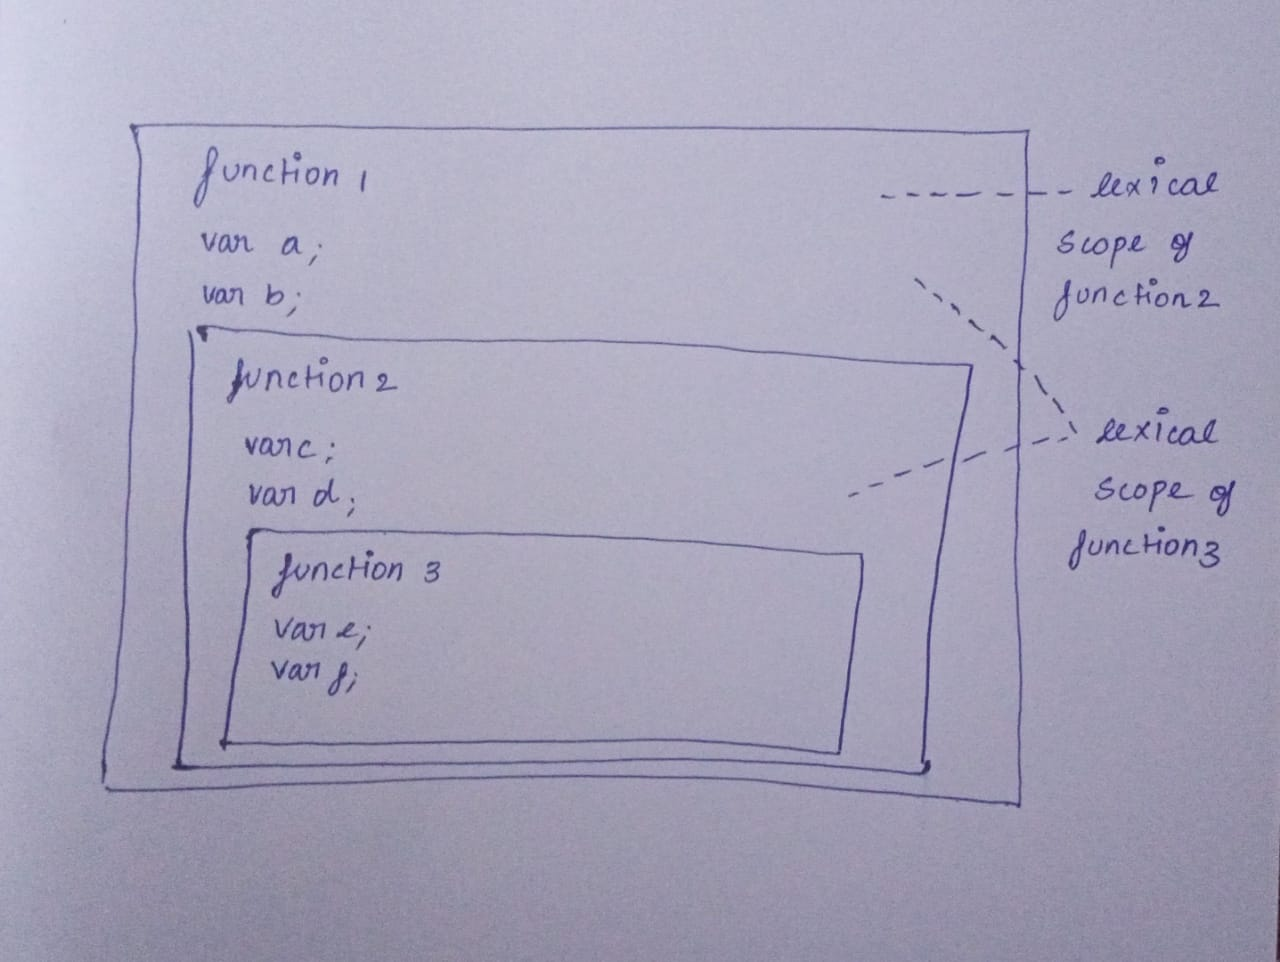 function 1
var a;
var b;
function 2
var c;
var d;
function 3
var e;
var f;
lexical
scope of
function 2
lexical
scope of
function 3